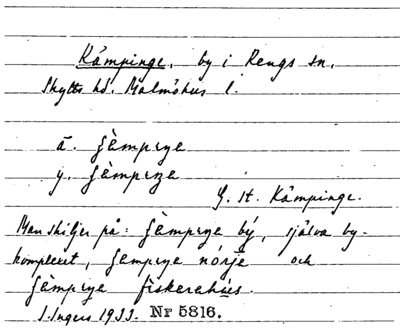 Kämpinge, by i Rengs sn,
Skytts hd. Malmöhus l.
ä. ʃèmpɩŋe
y. ʃèmpɩŋe
G. st. Kämpinge.
Man skiljer på: ʃèmpɩŋe bý, själva by-
komplexet, ʃempɩŋe nórje och
ʃèmpɩŋe fiskerahús.
I. Ingers 1933. Nr 5816.